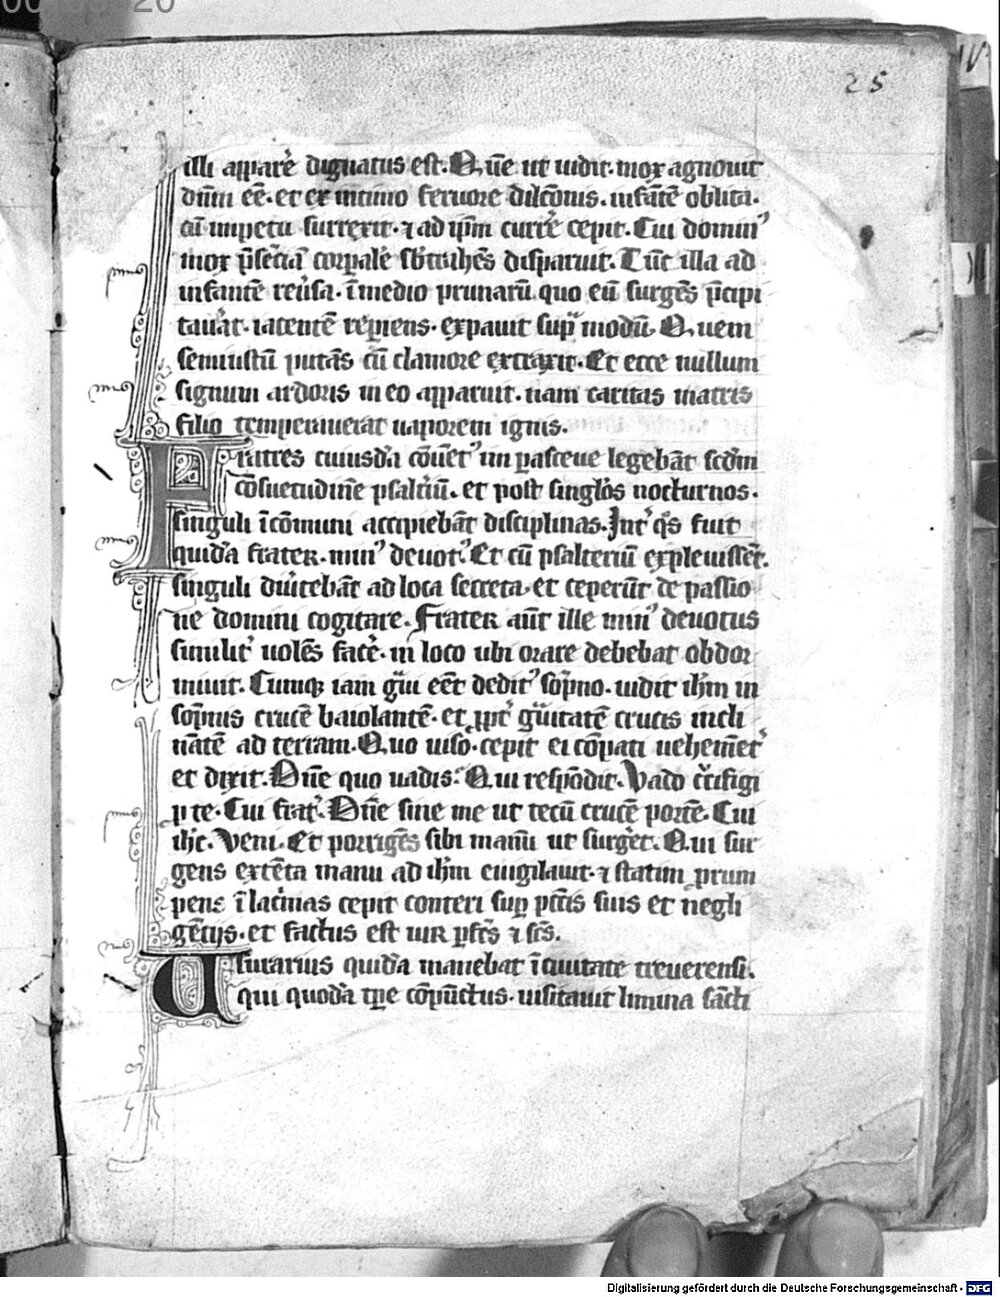 25
illi apparē dignatus est. Q̄ ūe ut uidit. mox agnouit
dn̄m eē. et ex intimo feruore dilc̄onis. infantē oblita.
cū impetu surrexit. ⁊ ad ip̄m currē cepit. Cui domin᾿
mox p̄sēciā corpalē sb̓trahēs disparuit. Tūc illa ad
infantē reūsa. ī medio prunarū quo eū surgēs p̄cipi
tauāt. iacentē rep̄iens. expauit sup̄ modū. Quem
semiustū putās cū clamore extraxit. Et ecce nullum
signum ardoris in eo apparuit. nam caritas matris
filio temperauerat uaporem ignis.
Fratres cuiusdā cōuēt᾿ in parasceue legebāt scdm
cōsuetudinē psaltiū. et post singlōs nocturnos.
singuli īcōmuni accipiebāt disciplinas. Int̄ q̄s fuit
quidā frater. min᾿ deuot᾿. Et cū psalteriū expleuissēt.
singuli diūtebāt ad loca secreta. et ceperūt de passio
ne domini cogitare. Frater aūt ille min᾿ deuotus
similit̄ uolēs facē. in loco ubi orare debebat obdor
miuit. Cumq; iam g̓ui eēt dedit᾿ sop̄no. uidit ih̄m in
sop̄nis crucē baiolantē. et pp̄t̄ g̓uitatē crucis incli
natē ad terram. Quo uiso. cepit ei cōpati uehemēt᾿
et dixit. Dn̄e quo uadis. Qui respōdit. Vado c̓cifigi
p te. Cui frat̄. Dn̄e sine me ut tecū crucē portē. Cui
ih̄c. Veni. Et porrigēs sibi manū ut surgēt. Qui sur
gens extēta manu ad ih̄m euigilauit. ⁊ statim prum
pens ī lac̓mas cepit conteri sup pc̄cis suis et negli
gēcijs. et factus est uir pfc̄s ⁊ sc̄s.
Usurarius quidā manebat ī ciuitate treuerensi.
qui quodā tp̄e cōpūctus. uisitauit limina sācti
Digitalisierung gefördert durch die Deutsche Forschungsgemeinschaft - DFG